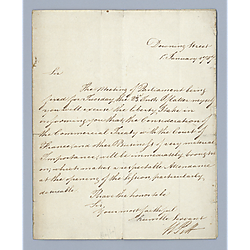 Downing Street
January 1787
Sir
The Meeting of Parliament being
fixed for Tuesday, the 23d
you will excuse the liberty I take in
informing you that, the Consideration of
the Commercial Treaty with the Court of
France, and other Business of very material
Importance, will be immediately brought
on, which makes a respectable Attendance
at the opening of the Session particularly
desirable.
I have the honor to be
Sir,
Your most faithful
humble Servant
W Pitt